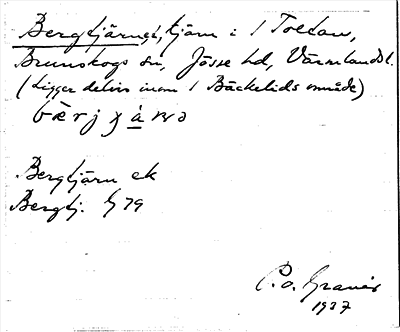 Bergtjärnet, tjärn i 1 Toltan,
Brunskogs sn, Jösse hd, Värmlands l.
(Ligger delvis inom 1 Bäckelids område)
Bergtjärn ek
Bergtj. G 79
P.O. Granér
1937